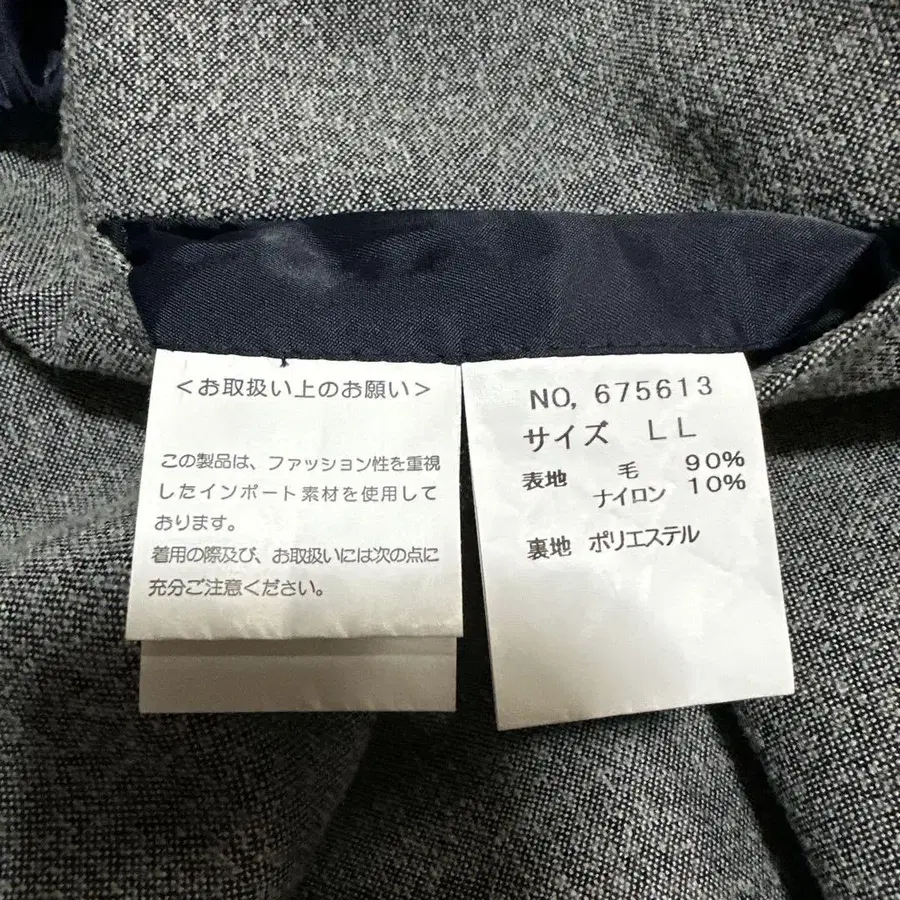 <お取扱い上のお願い>
この製品は、ファッション性を重視
したインポート素材を使用して
おります。
着用の際及び、お取扱いには次の点に
充分ご注意ください。
NO, 675613
サイズ LL
表地 毛 90%
ナイロン 10%
裏地 ポリエステル